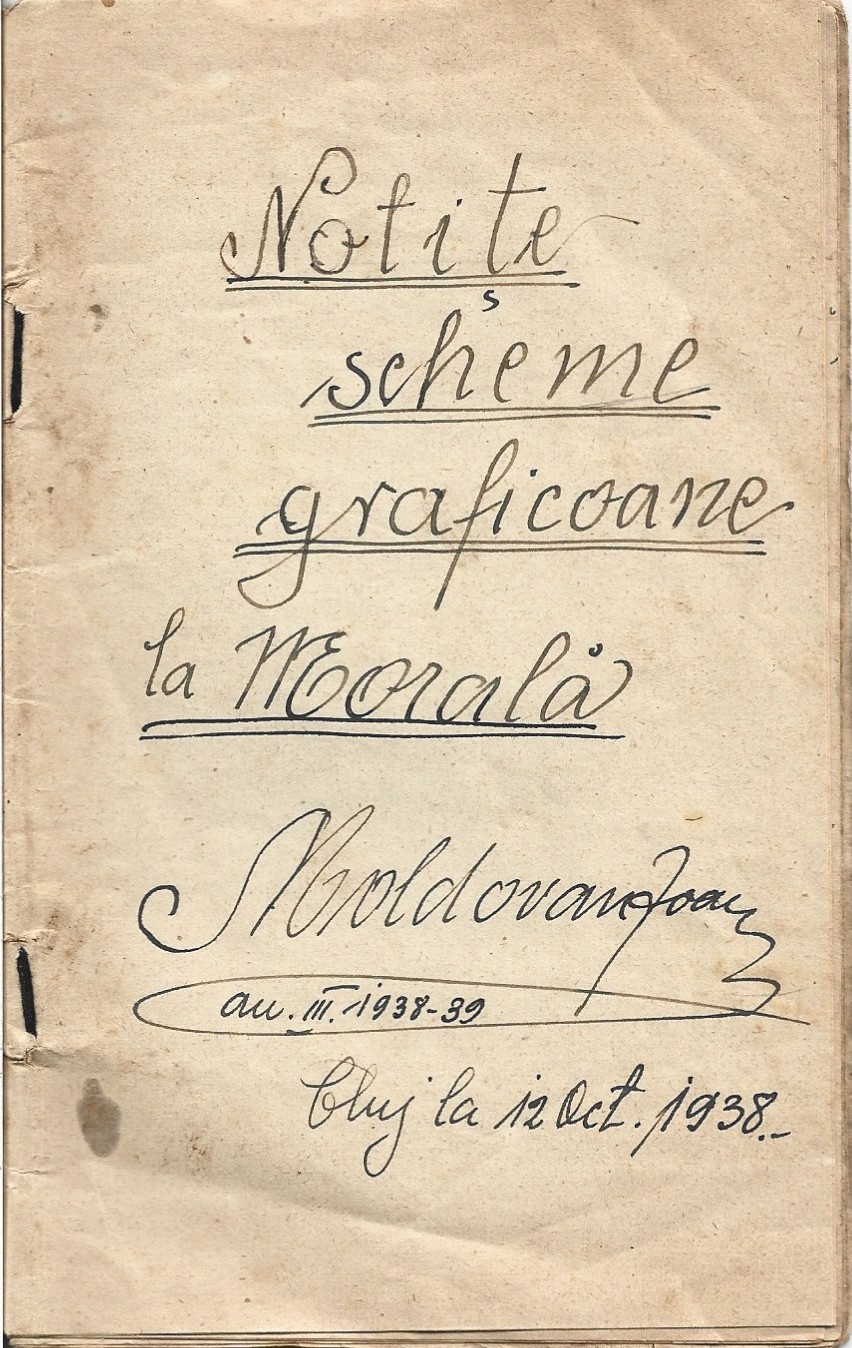 Notițe
scheme
graficoane
la Morală
Moldovan Ioan
an. III. 1938-39
Cluj la 12 Oct. 1938.-